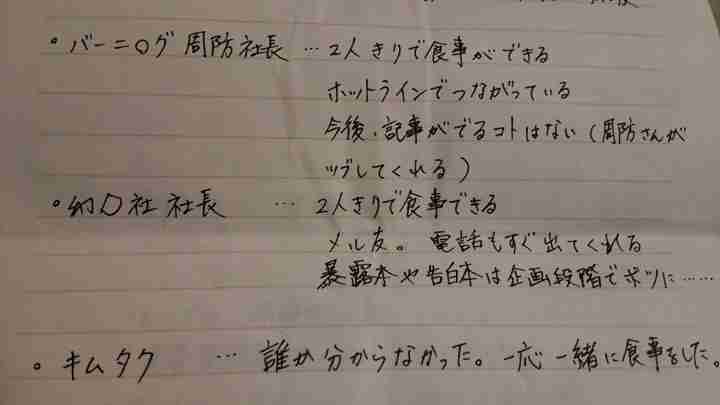 • バーニ〇グ 周防社長 … 2人きりで食事ができる
ホットラインでつながっている
今後、記事がでるコトはない(周防さんが
ツブしてくれる)
• 幻〇社 社長 … 2人きりで食事できる
メル友。電話もすぐ出てくれる
暴露本や告白本は企画段階でボツに……
• キムタク … 誰か分からなかった。一応一緒に食事をした。